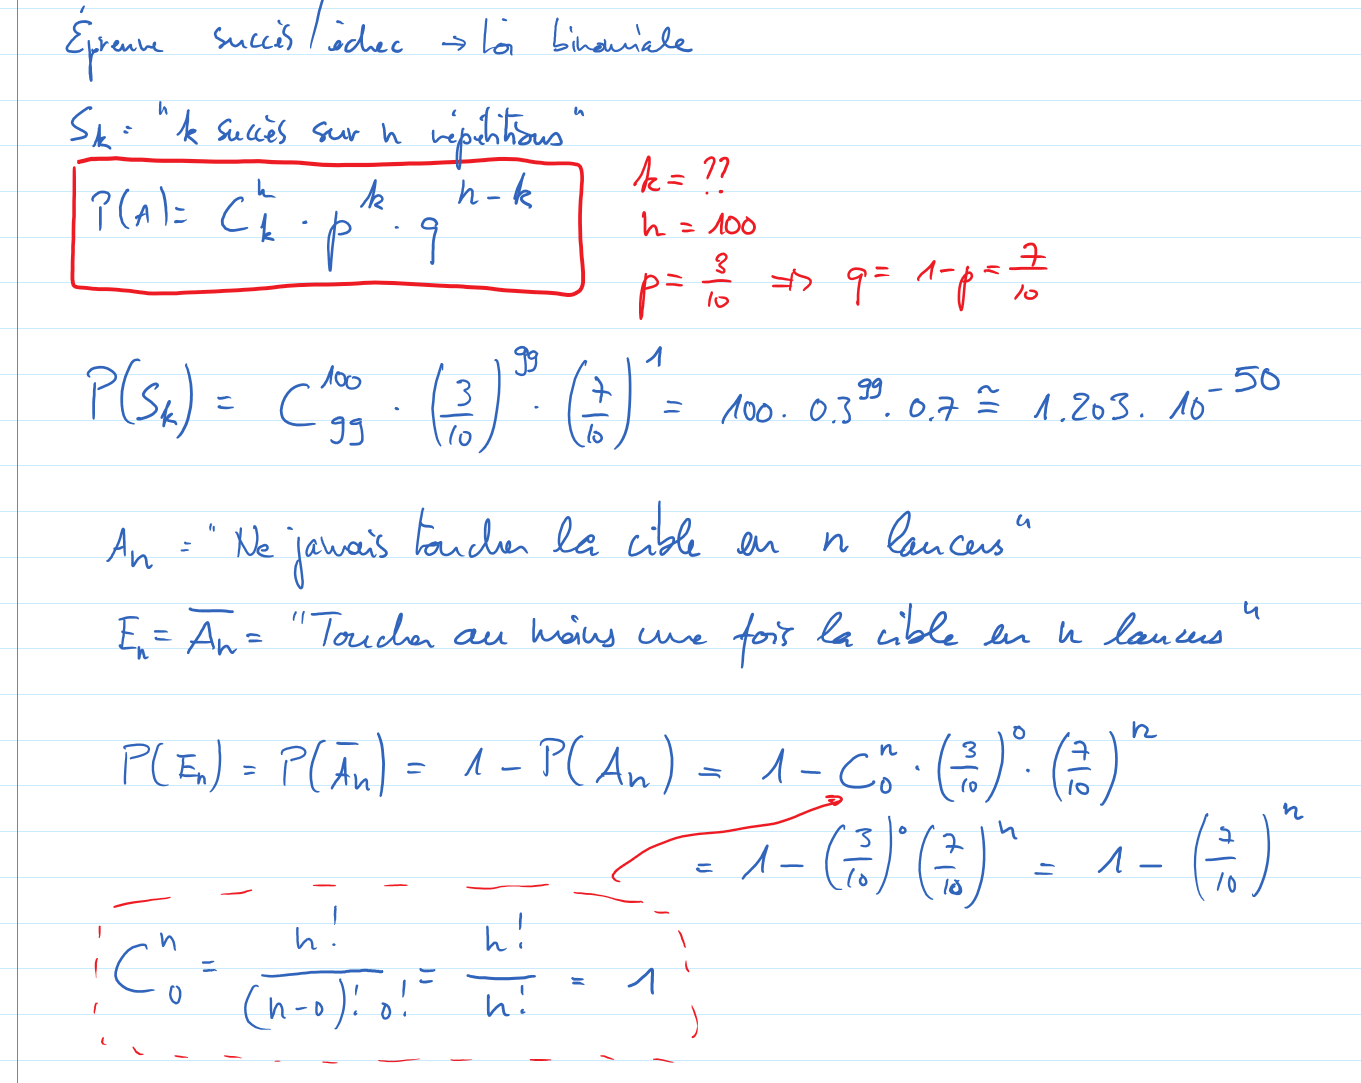 Épreuve succès/échec → Loi binomiale
S_k = "k succès sur n répétitions"
P(A) = C^n_k · p^k · q^{n-k}
k = ??
n = 100
p = 3/10 ⇒ q = 1-p = 7/10
P(S_k) = C^{100}_{99} · (3/10)^{99} · (7/10)^1 = 100 · 0.3^{99} · 0.7 ≅ 1.203 · 10^{-50}
A_n = "Ne jamais toucher la cible en n lancers"
E_n = \overline{A_n} = "Toucher au moins une fois la cible en n lancers"
P(E_n) = P(\overline{A}_n) = 1 - P(A_n) = 1 - C^n_0 · (3/10)^0 · (7/10)^n
= 1 - (3/10)^0 (7/10)^n = 1 - (7/10)^n
C^n_0 = n!/((n-0)! 0!) = n!/n! = 1